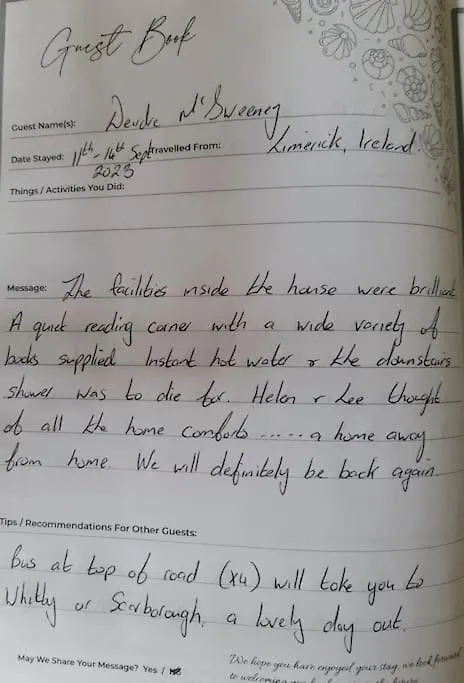 Guest Book
Guest Name(s): Deirdre McSweeney
Date Stayed: 11th - 14th Sept 2023 Travelled From: Limerick, Ireland.
Things / Activities You Did:
Message: The facilities inside the house were brilliant
A quiet reading corner with a wide variety of
books supplied Instant hot water & the downstairs
shower was to die for. Helen & Lee thought
of all the home comforts ..... a home away
from home. We will definitely be back again.
Tips / Recommendations For Other Guests:
Bus at top of road (X4) will take you to
Whitby or Scarborough, a lovely day out.
May We Share Your Message? Yes / No
We hope you have enjoyed your stay, we look forward
to welcoming you back